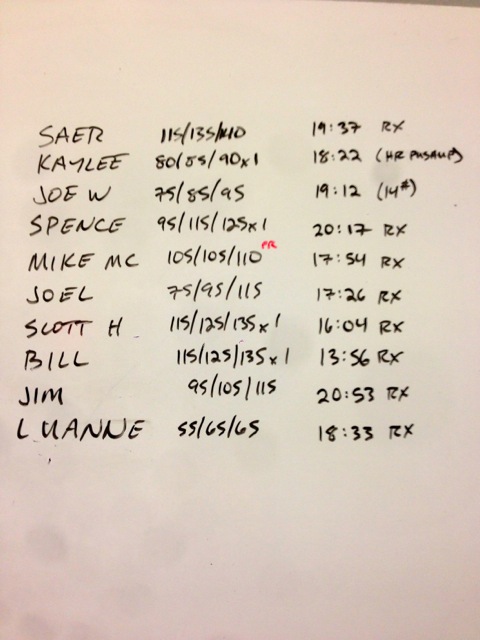 SAER 115/135/140 19:37 RX
KAYLEE 80/85/90x1 18:22 (HR PUSHUP)
JOE W 75/85/95 19:12 (14#)
SPENCE 95/115/125x1 20:17 RX
MIKE MC 105/105/110 PR 17:54 RX
JOEL 75/95/115 17:26 RX
SCOTT H 115/125/135x1 16:04 RX
BILL 115/125/135x1 13:56 RX
JIM 95/105/115 20:53 RX
LUANNE 55/65/65 18:33 RX